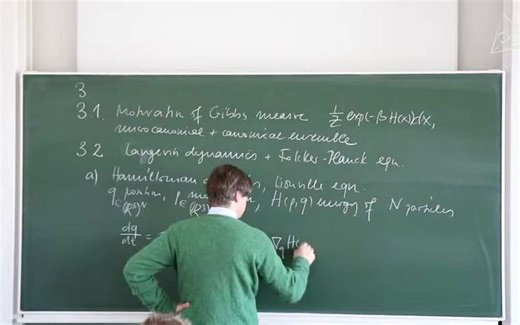 3
3.1. Motivation of Gibbs measure 1/Z exp(-βH(x))dx,
microcanonical + canonical ensemble
3.2 Langevin dynamics + Fokker-Planck eqn.
a) Hamiltonian Liouville eqn.
q position, p H(p,q) energy of N particles
dq/dt = ∇q H(